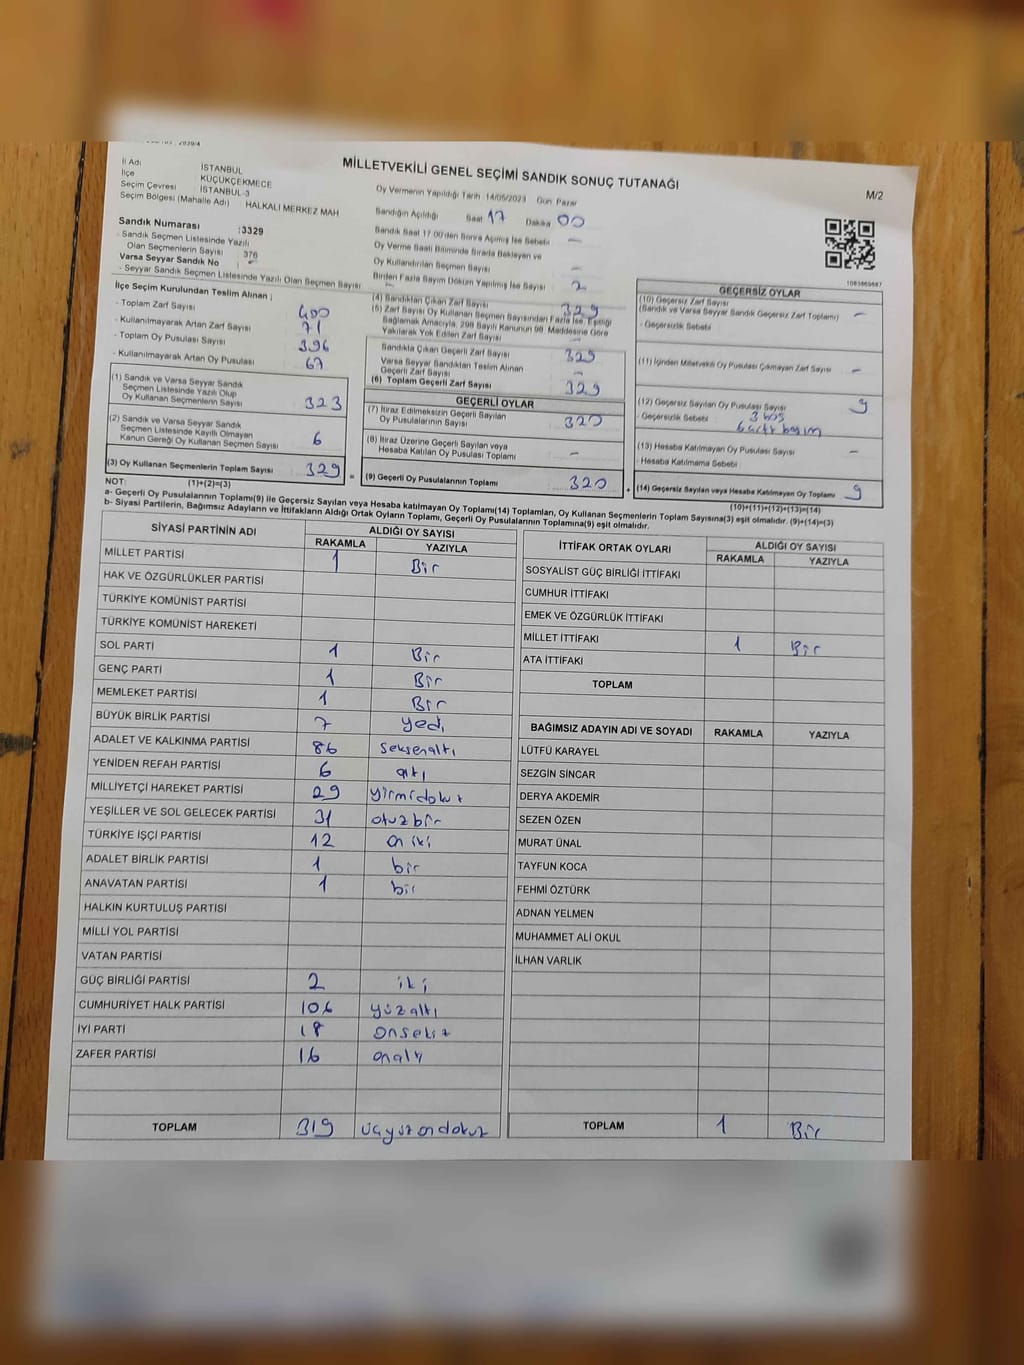 MİLLETVEKİLİ GENEL SEÇİMİ SANDIK SONUÇ TUTANAĞI
M/2
İl Adı İSTANBUL
İlçe KÜÇÜKÇEKMECE
Seçim Çevresi İSTANBUL-3
Seçim Bölgesi (Mahalle Adı) HALKALI MERKEZ MAH
Oy Vermenin Yapıldığı Tarih 14/05/2023 Gün Pazar
Sandığın Açıldığı Saat 17 Dakika 00
Sandık Saat 17:00'den Sonra Açılmış İse Sebebi -
Oy Verme Saati Bitiminde Sırada Bekleyen ve
Oy Kullandırılan Seçmen Sayısı -
Birden Fazla Sayım Döküm Yapılmış İse Sayısı 2
Sandık Numarası :3329
- Sandık Seçmen Listesinde Yazılı
Olan Seçmenlerin Sayısı 376
Varsa Seyyar Sandık No : -
- Seyyar Sandık Seçmen Listesinde Yazılı Olan Seçmen Sayısı -
İlçe Seçim Kurulundan Teslim Alınan ;
- Toplam Zarf Sayısı 400
- Kullanılmayarak Artan Zarf Sayısı 71
- Toplam Oy Pusulası Sayısı 396
- Kullanılmayarak Artan Oy Pusulası 67
(1) Sandık ve Varsa Seyyar Sandık
Seçmen Listesinde Yazılı Olup
Oy Kullanan Seçmenlerin Sayısı 323
(2) Sandık ve Varsa Seyyar Sandık
Seçmen Listesinde Kayıtlı Olmayan
Kanun Gereği Oy Kullanan Seçmen Sayısı 6
(3) Oy Kullanan Seçmenlerin Toplam Sayısı 329 =
(4) Sandıktan Çıkan Zarf Sayısı 329
(5) Zarf Sayısı Oy Kullanan Seçmen Sayısından Fazla İse, Eşitliği
Sağlamak Amacıyla, 298 Sayılı Kanunun 98. Maddesine Göre
Yakılarak Yok Edilen Zarf Sayısı -
Sandıkta Çıkan Geçerli Zarf Sayısı 329
Varsa Seyyar Sandıktan Teslim Alınan
Geçerli Zarf Sayısı -
(6) Toplam Geçerli Zarf Sayısı 329
GEÇERLİ OYLAR
(7) İtiraz Edilmeksizin Geçerli Sayılan
Oy Pusulalarının Sayısı 320
(8) İtiraz Üzerine Geçerli Sayılan veya
Hesaba Katılan Oy Pusulası Toplamı -
(9) Geçerli Oy Pusulalarının Toplamı 320 +
1083865687
GEÇERSİZ OYLAR
(10) Geçersiz Zarf Sayısı
(Sandık ve Varsa Seyyar Sandık Geçersiz Zarf Toplamı) -
- Geçersizlik Sebebi
(11) İçinden Milletvekili Oy Pusulası Çıkmayan Zarf Sayısı -
(12) Geçersiz Sayılan Oy Pusulası Sayısı 9
- Geçersizlik Sebebi 3 boş
(13) Hesaba Katılmayan Oy Pusulası Sayısı -
- Hesaba Katılmama Sebebi
(14) Geçersiz Sayılan veya Hesaba Katılmayan Oy Toplamı 9
NOT: (1)+(2)=(3)
(10)+(11)+(12)+(13)=(14)
a- Geçerli Oy Pusulalarının Toplamı(9) ile Geçersiz Sayılan veya Hesaba katılmayan Oy Toplamı(14) Toplamları, Oy Kullanan Seçmenlerin Toplam Sayısına(3) eşit olmalıdır. (9)+(14)=(3)
b- Siyasi Partilerin, Bağımsız Adayların ve İttifakların Aldığı Ortak Oyların Toplamı, Geçerli Oy Pusulalarının Toplamına(9) eşit olmalıdır.
SİYASİ PARTİNİN ADI ALDIĞI OY SAYISI
RAKAMLA YAZIYLA
MİLLET PARTİSİ 1 Bir
HAK VE ÖZGÜRLÜKLER PARTİSİ
TÜRKİYE KOMÜNİST PARTİSİ
TÜRKİYE KOMÜNİST HAREKETİ
SOL PARTİ 1 Bir
GENÇ PARTİ 1 Bir
MEMLEKET PARTİSİ 1 Bir
BÜYÜK BİRLİK PARTİSİ 7 yedi
ADALET VE KALKINMA PARTİSİ 86 seksenaltı
YENİDEN REFAH PARTİSİ 6 altı
MİLLİYETÇİ HAREKET PARTİSİ 29 yirmidokuz
YEŞİLLER VE SOL GELECEK PARTİSİ 31 otuzbir
TÜRKİYE İŞÇİ PARTİSİ 12 on iki
ADALET BİRLİK PARTİSİ 1 bir
ANAVATAN PARTİSİ 1 bir
HALKIN KURTULUŞ PARTİSİ
MİLLİ YOL PARTİSİ
VATAN PARTİSİ
GÜÇ BİRLİĞİ PARTİSİ 2 iki
CUMHURİYET HALK PARTİSİ 106 yüzaltı
İYİ PARTİ 18 onsekiz
ZAFER PARTİSİ 16 onaltı
TOPLAM 319 üçyüzondokuz
İTTİFAK ORTAK OYLARI ALDIĞI OY SAYISI
RAKAMLA YAZIYLA
SOSYALİST GÜÇ BİRLİĞİ İTTİFAKI
CUMHUR İTTİFAKI
EMEK VE ÖZGÜRLÜK İTTİFAKI
MİLLET İTTİFAKI 1 Bir
ATA İTTİFAKI
TOPLAM
BAĞIMSIZ ADAYIN ADI VE SOYADI RAKAMLA YAZIYLA
LÜTFÜ KARAYEL
SEZGİN SİNCAR
DERYA AKDEMİR
SEZEN ÖZEN
MURAT ÜNAL
TAYFUN KOCA
FEHMİ ÖZTÜRK
ADNAN YELMEN
MUHAMMET ALİ OKUL
İLHAN VARLIK
TOPLAM 1 Bir